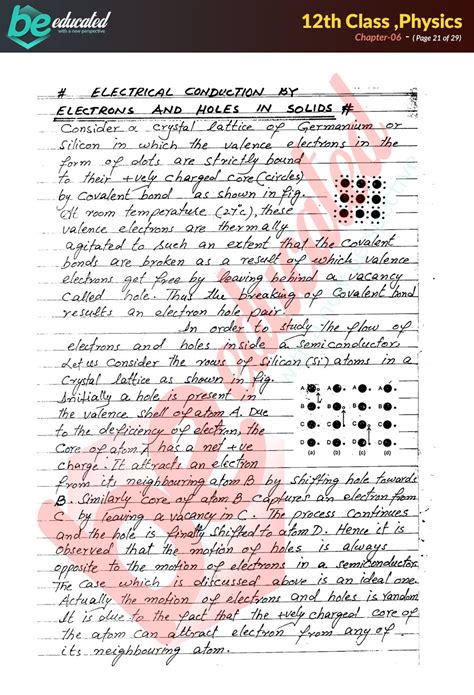 be educated
with a new perspective
12th Class ,Physics
Chapter-06 - ( Page 21 of 29)
# ELECTRICAL CONDUCTION BY
ELECTRONS AND HOLES IN SOLIDS #
Consider a crystal lattice of Germanium or
Silicon in which the valence electrons in the
form of dots are strictly bound
to their +vely charged core (circles)
by Covalent bond as shown in fig.
At room temperature (27°c), these
valence electrons are thermally
agitated to such an extent that the Covalent
bonds are broken as a result of which valence
electrons get free by leaving behind a vacancy
Called hole. Thus the breaking of Covalent bond
results an electron hole pair.
In order to study the flow of
electrons and holes inside a semiconductor,
Let us Consider the rows of Silicon (Si) atoms in a
Crystal lattice as shown in fig.
Initially a hole is present in
the valence shell of atom A. Due
to the deficiency of electron, the
Core of atom A has a net +ve
charge. It attracts an electron
from its neighbouring atom B by shifting hole towards
B. Similarly core of atom B Captures an electron from
C by leaving a vacancy in C. The process continues
and the hole is finally shifted to atom D. Hence it is
observed that the motion of holes is always
opposite to the motion of electrons in a semiconductor.
The Case which is discussed above is an ideal one.
Actually the motion of electrons and holes is random
It is due to the fact that the +vely charged core of
the atom can attract electron from any of
its neighbouring atom.
A
B
C
D
A
B
C
D
(a) (b) (c) (d)
be educated